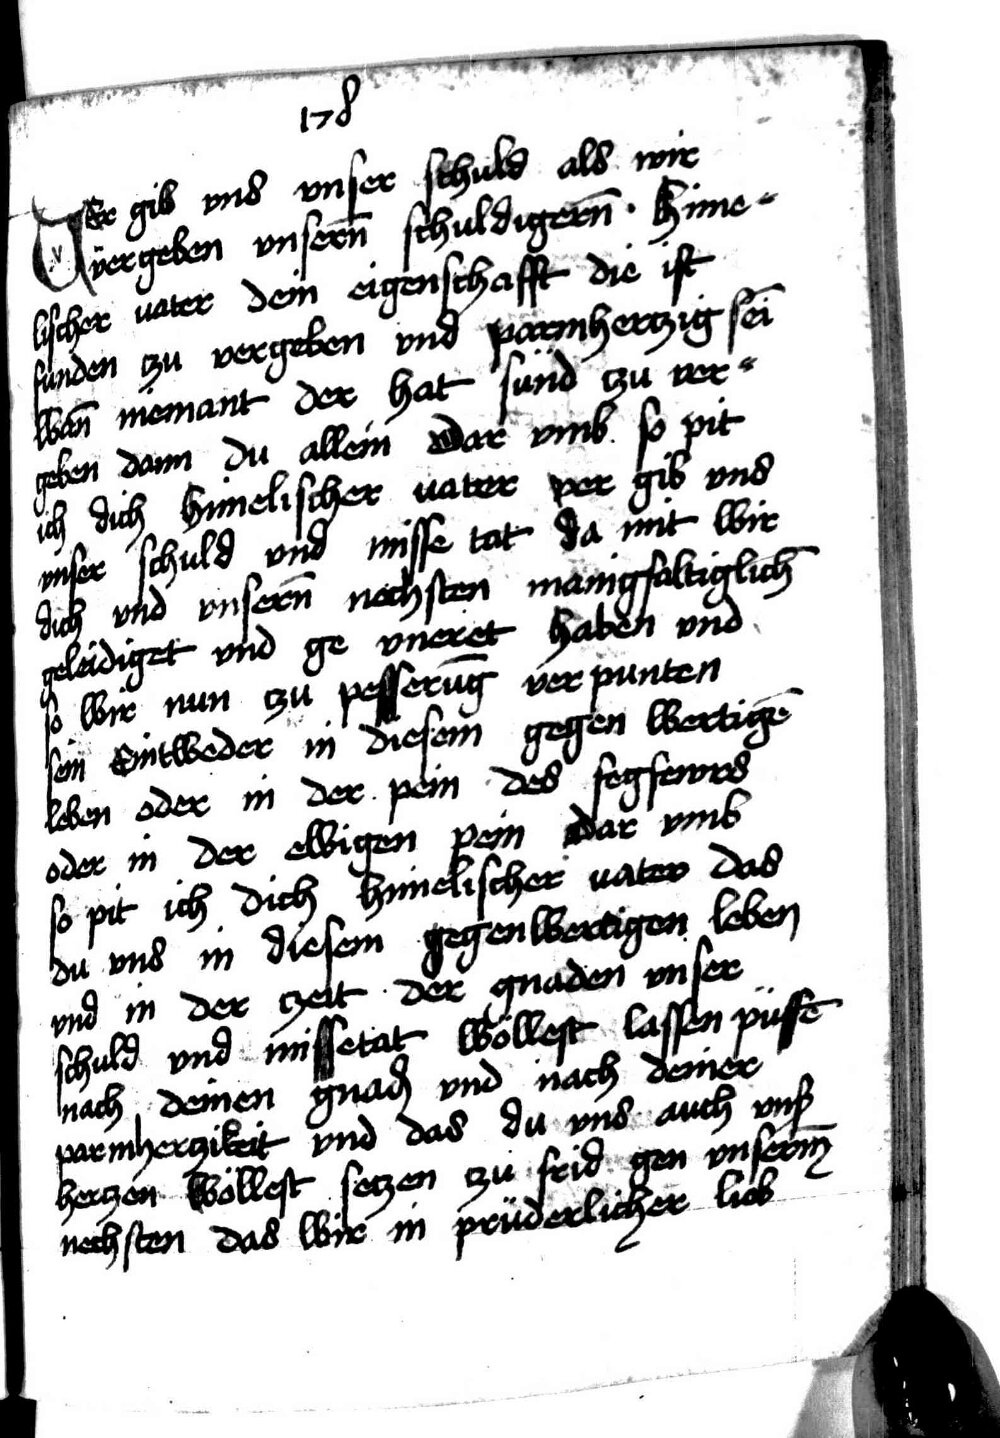 178
VEr gib vns vnser schuld als wir
vergeben vnsern̄ schuldigern̄ · hime-
lischer vater dein eigenschafft die ist
sunden tzu vergeben vnd parmhertzig sei
Wan̄ niemant der hat sünd tzu ver-
geben dann du allein Dar vmb so pit
ich dich himelischer vater ver gib vns
vnser schuld vnd misse tat da mit wir
dich vnd vnsern̄ nechsten manigfaltiglich̄
geleidiget vnd ge vneret haben vnd
so wir nun tzu pesserūg ver punten
sein Eintweder in diesem gegen wertigē
leben oder in der pein des fegfewrs
oder in der ewigen pein Dar vmb
so pit ich dich himelischer vater das
du vns in diesem gegenwertigen leben
vnd in der tzeit der gnaden vnser
schuld vnd missetat wöllest lassen püssē
nach deinen gnadꝫ vnd nach deiner
parmhertzikeit vnd das du vns auch vnß
hertzen wöllest setzen tzu frid gen vnserm̄
nechsten das wir in prüderlicher lieb